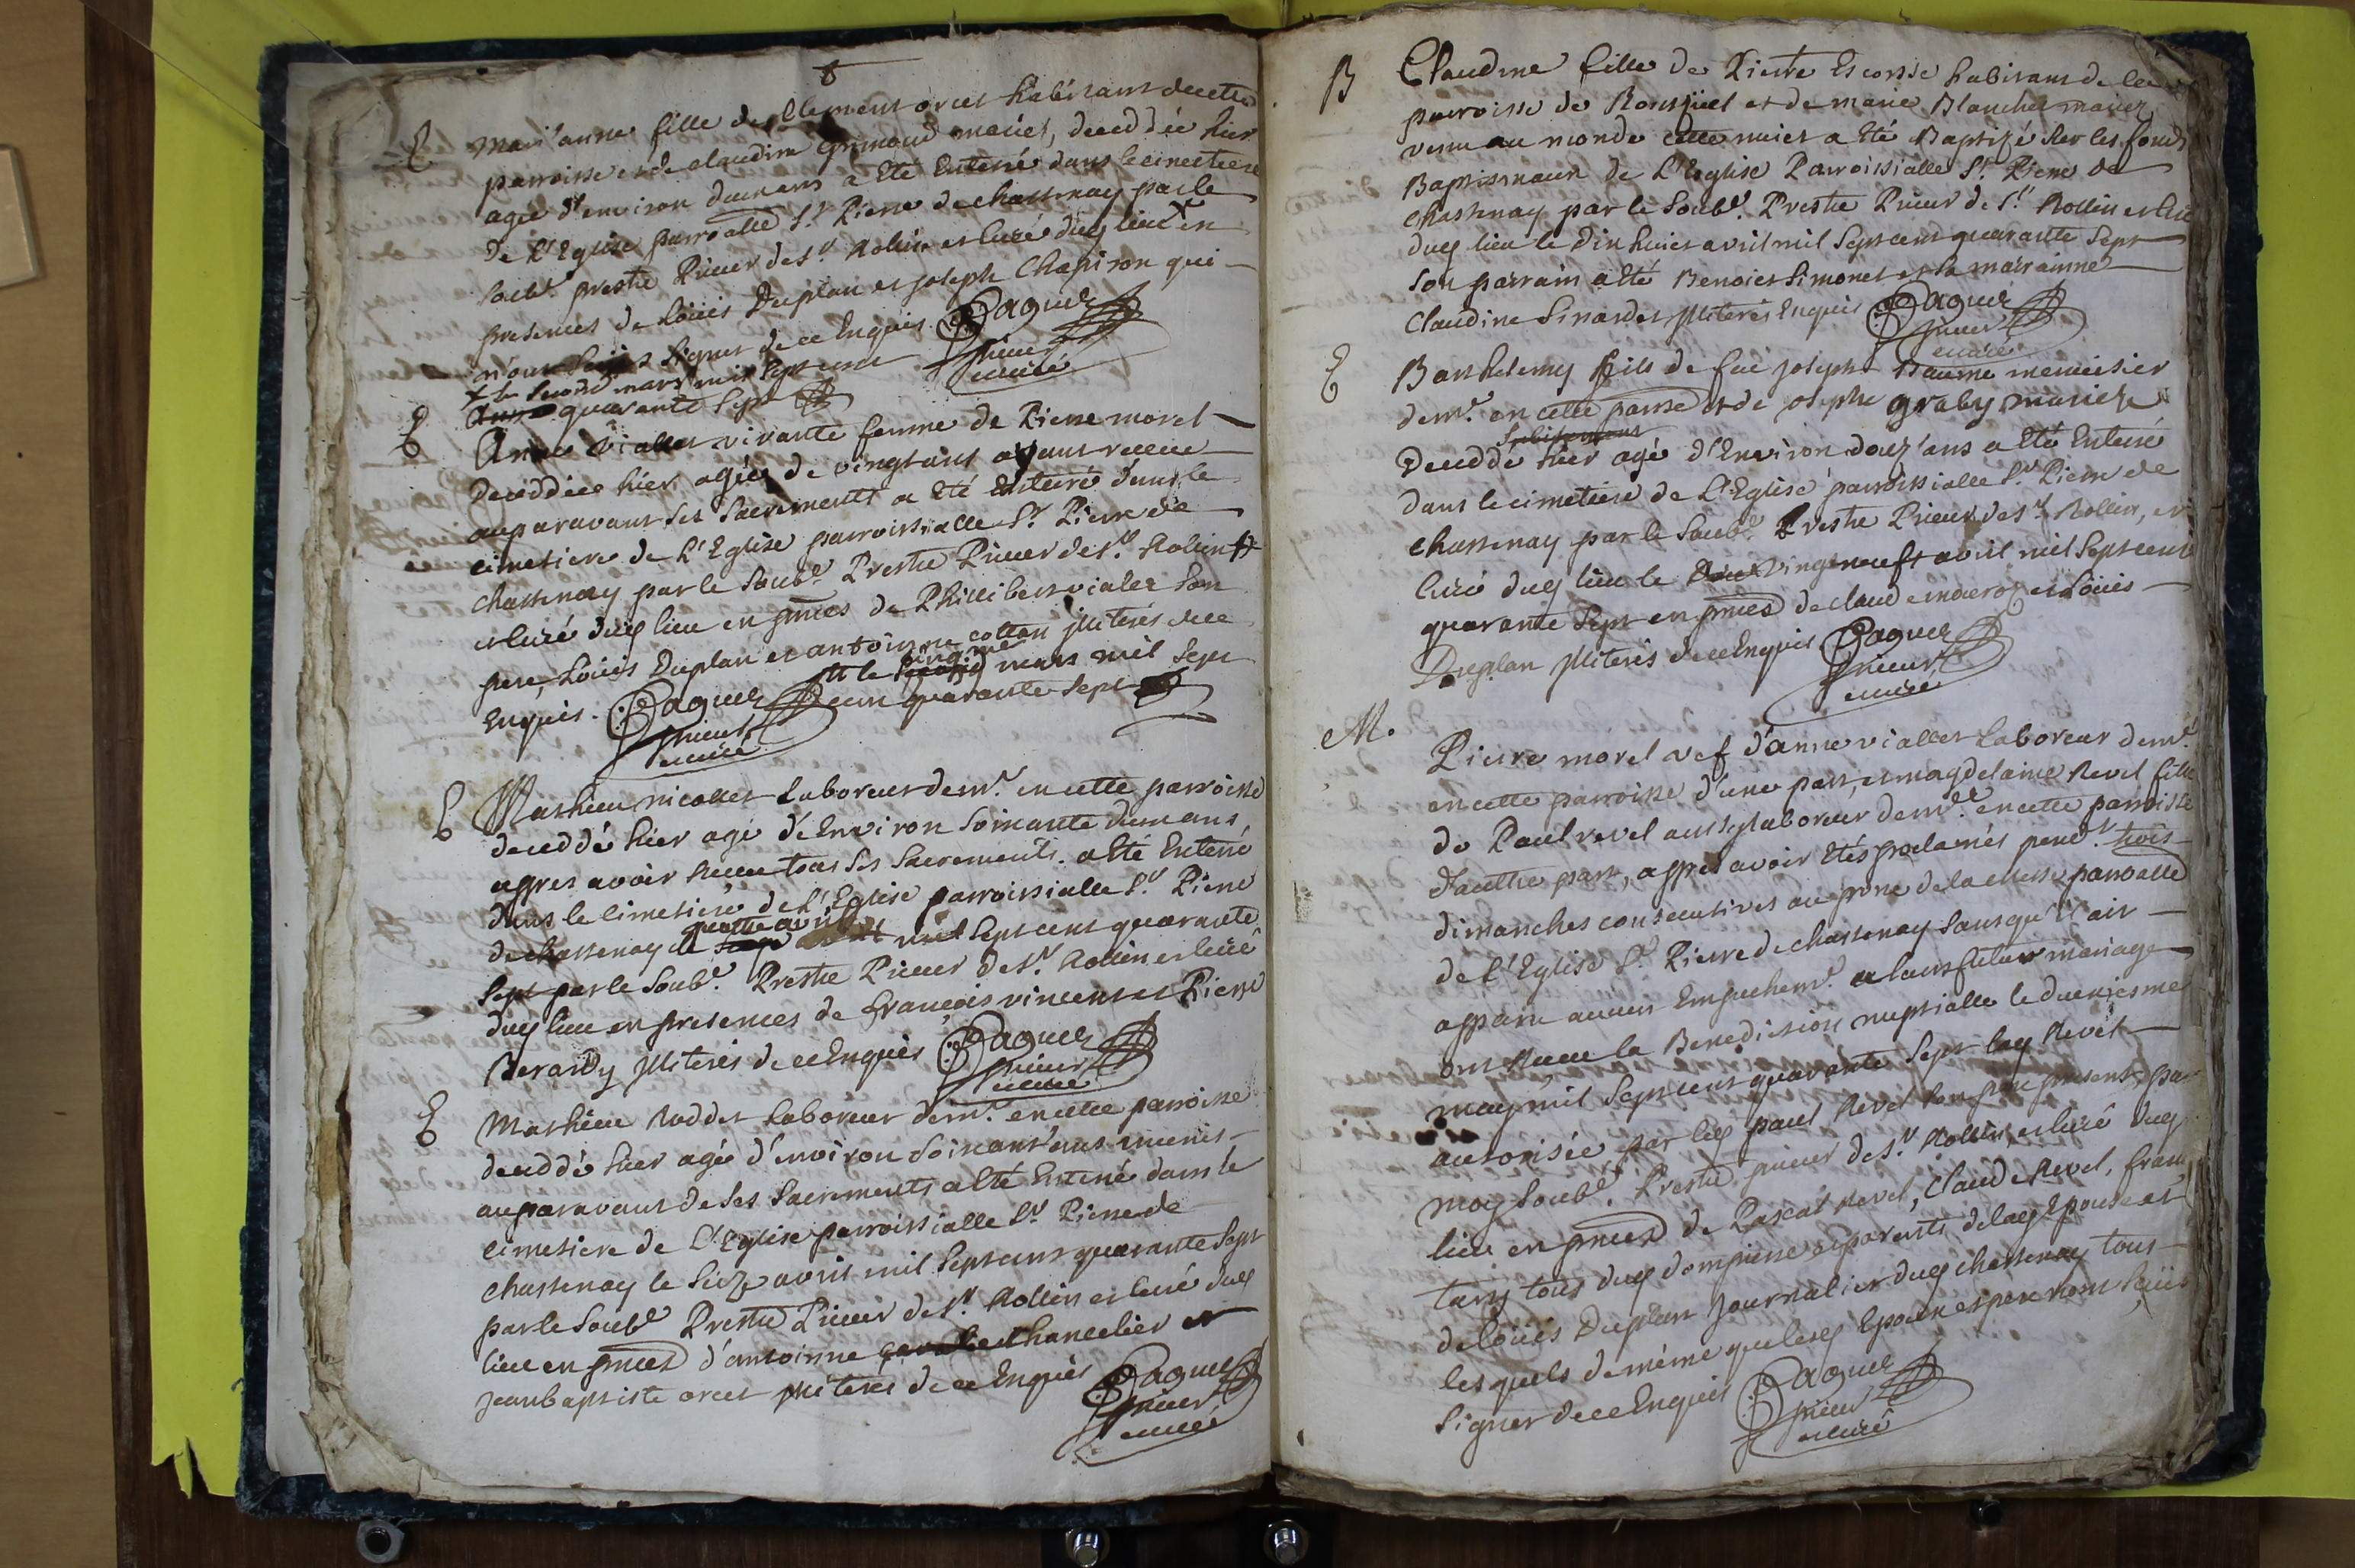 E Mari'anne fille de Clement orcet habitant decette
parroisse et de claudine Grimoud mariés, deceddée hier
agée d'environ deux ans a Eté Enterré dans le cimetiere
de L'Eglise parroalle St. Pierre de chassenay par le
soubé. prestre Prieur de St. Rollin et curé duq lieu en
presences de Loüis Duplan et joseph Chapiron qui
n'ont sçeus signer de ce Enquis Paquez
+ le second mars mil sept cent prieur
quarante sept et curé
E Anne viallet vivante femme de Pierre morel
Deceddée hier agée de vingt ans ayant receue
auparavant ses sacrements a Eté Enterré dans le
cimetiere de L'Eglise parroissialle St. Pierre de
chassenay par le soubé. Prestre Prieur de St. Rolin
et curé duq lieu en pnces de Phillibert vialet son
pere, Loüis Duplan et antoinne cotton illiterés de ce
Enquis. Paquez le cinqme mars mil sept
prieur cent quarante sept
et curé
E Mathieu nicollet Laboreur demt. en cette parroisse
deceddé hier agé d'Environ soixante deux ans
appres avoir receu tous ses sacrements. a Eté Enterré
dans le cimetiere de L'Eglise parroissialle St. Pierre
de chassenay le quattre avril mil sept cent quarante
sept par le soubé. Prestre Prieur de St. Rollin et curé
duq lieu en presences de françois vincent et Pierre
Berardy illiterés de ce Enquis Paquez
prieur
et curé
E Mathieu Roddet Laboreur demt. en cette parroisse
deceddé hier agé d'environ soixant'ans munis
auparavant de ses sacrements a Eté Enterré dans le
cimetiere de L'Eglise parroissialle St. Pierre de
chassenay le seize avril mil sept cent quarante sept
par le soubé Prestre Prieur de St. Rollin et curé duq
lieu en pnces d'antoinne chancelier et
jean baptiste orcet illiterés de ce Enquis Paquez
prieur
et curé
B Claudine fille de Pierre Escosse habitant de la
parroisse de et de marie Blanchet mariez
venu au monde cette nuict a Eté Baptizé sur les fonds
Baptismaux de L'Eglise Parroissialle St. Pierre de
chassenay par le soubé. Prestre Prieur de St. Rollin et curé
duq lieu le dix huict avril mil sept cent quarante sept
son parrain a Eté Benoict simonet et sa marainne
Claudine Sinardet illiterés Enquis Paquez
prieur
et curé
E Barthelemy fils de feu joseph Baume menuisier
demt. en cette parrse et de josephe graby mariez
Deceddé hier agé d'Environ douz'ans a Eté Enterré
dans le cimetiere de L'Eglise parroissialle St. Pierre de
chassenay par le soubé. Prestre Prieur de St. Rollin, et
curé duq lieu le vingt neuft avril mil sept cent
quarante sept en pnces de claude et Loüis
Duplan illiterés de ce Enquis Paquez
prieur
et curé
M. Pierre morel vef d'anne viallet Laboreur demt.
en cette parroisse d'une part, et magdelaine Revel fille
de Paul revel aussy laboreur demt. en cette parroisse
d'aultre part, appres avoir Etés proclamés pendt. trois
dimanches consecutives au prone de la Messe parroalle
de L'Eglise St. Pierre de chassenay sans qu'il ait
apparu aucun Empechemt. a leurs futur mariage
ont receu la Benediction nuptialle le
may mil sept cent quarante sept laq Revel
autorisée par leq paul Revel son pere present, par
moy soubé. Prestre prieur de St. Rollin, et curé duq
lieu en pnces de Pascal revel, claude Revel,
tous duq dompierre parents de laq Epouse et
de Loüis Duplan journalier duq chassenay tous
lesquels de même que lesq Epoux et pere n'ont sçeus
signer de ce Enquis Paquez
prieur
et curé